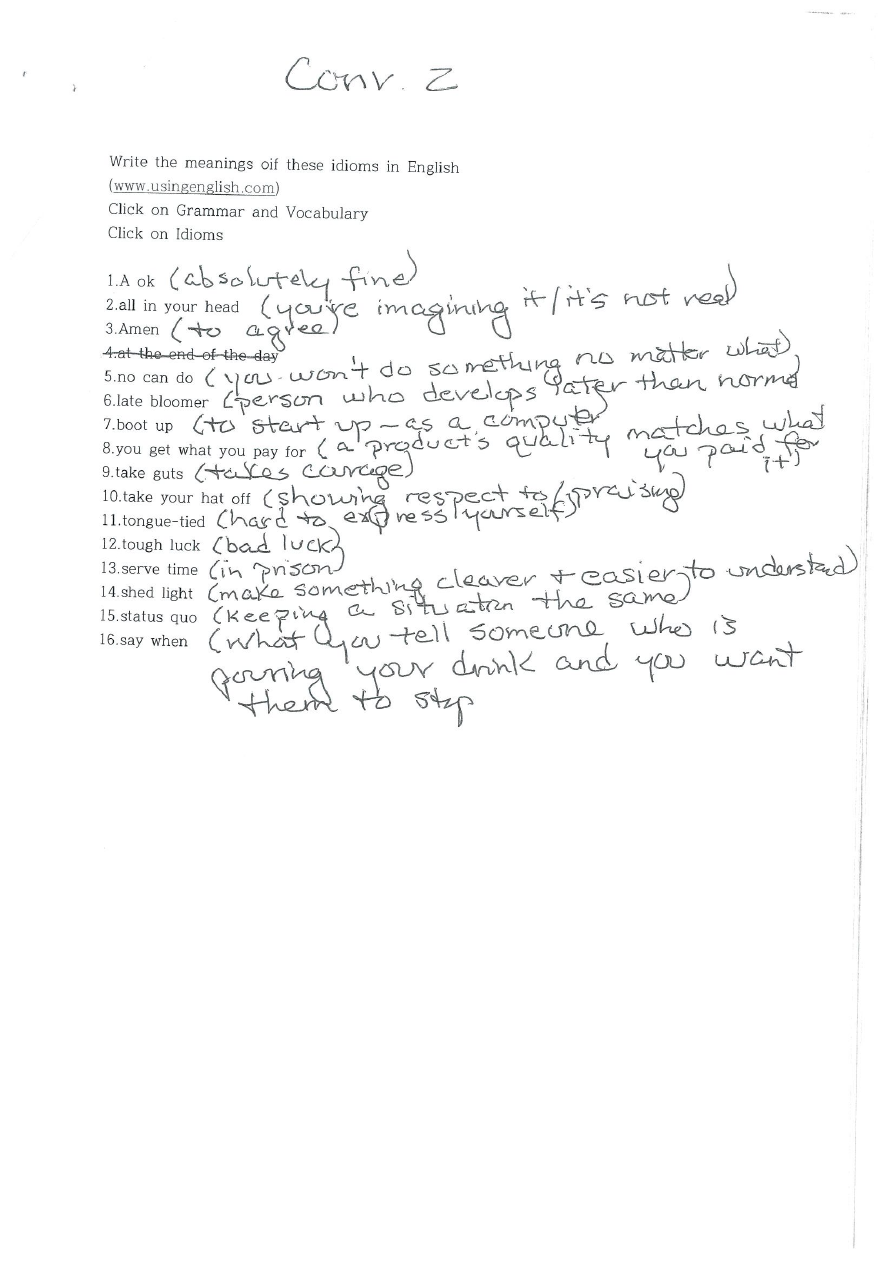 Conv. 2
Write the meanings oif these idioms in English
(www.usingenglish.com)
Click on Grammar and Vocabulary
Click on Idioms
1.A ok (absolutely fine)
2.all in your head (you're imagining it/it's not real)
3.Amen (to agree)
4.at the end of the day
5.no can do (you won't do something no matter what)
6.late bloomer (person who develops later than normal
7.boot up (to start up - as a computer)
8.you get what you pay for (a product's quality matches what
you paid for
it)
9.take guts (takes courage)
10.take your hat off (showing respect to/praising)
11.tongue-tied (hard to express yourself)
12.tough luck (bad luck)
13.serve time (in prison)
14.shed light (make something clearer + easier to understand)
15.status quo (keeping a situation the same)
16.say when (what you tell someone who is
pouring your drink and you want
them to stop